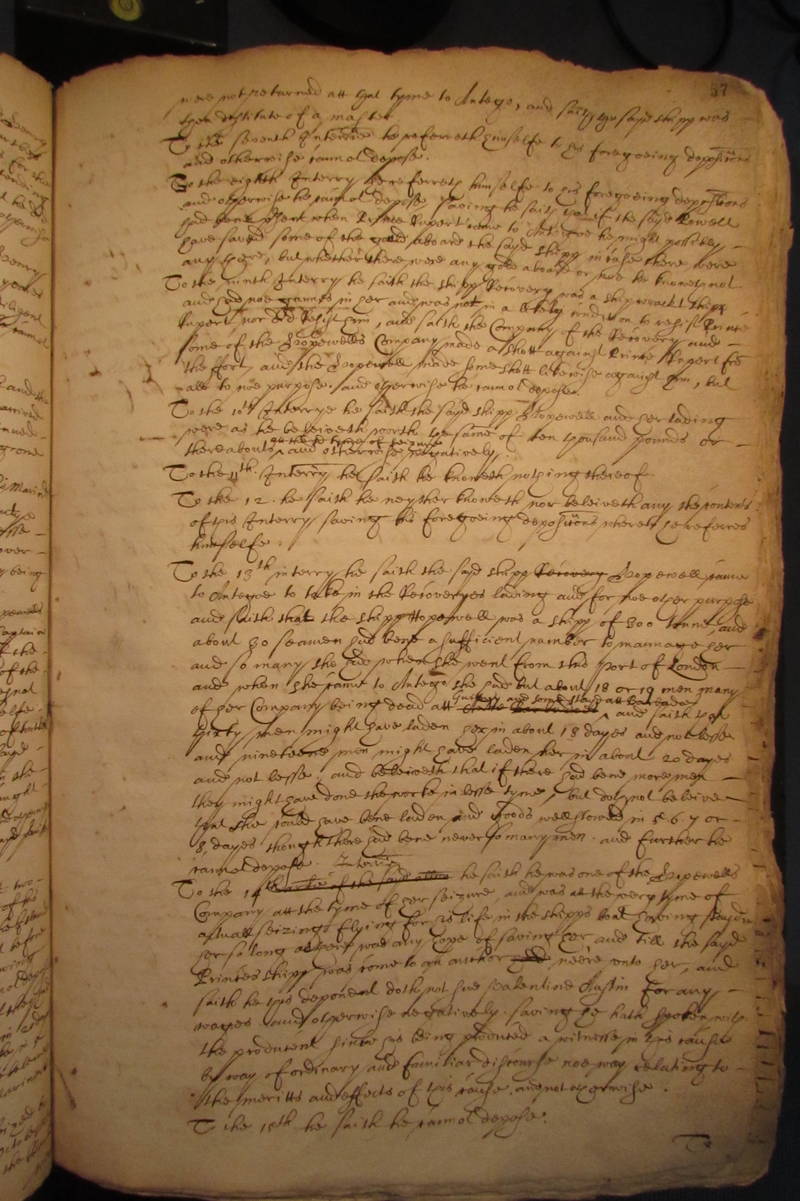 57
were not returned att that tyme to Antego, and saith the sayd shipp was
then destitute of a master
To the seventh Interrie he referreth himselfe to his foregoeing depositions
and otherwise cannot depose.
To the eighth Interry hee referreth himselfe to his foregoeing depositions
and otherwise he cannot depose, saving he saith that if the sayd Powell
had bene present when Prince Rupert came to Antego he might possibly
have saved some of the goods aboard the sayd shipp in case there were
any there, but whether there were any goods aboard or noe he knoweth not
To the ninth Interry he saith the shipp Recovery was a shipwrackt shipp
and had noe gunnes in her and was not in a condition to resist Prince
Rupert nor did resist him, and saith the Company of the Recovery and
some of the Hopewells Company made a shott against Prince Rupert from
the fort, and the Hopewell made some shott likewise against him, but
all to noe purpose. and otherwise he cannot depose.
To the 10th Interrye he saith the sayd shipp Hopewell and her lading
were as he beleiveth worth the same of ten thousand pounds or
thereabouts at the tyme of seizure and otherwise negatively.
To the 11th. Interry he saith he knoweth nothing thereof
To the 12. he saith he neyther knoweth nor beleiveth any the contents
of this Interry saving his foregoeing depositions whereto he referres
himselfe.
To the 13th interry he saith the sayd shipp Recovery Hopewell came
to Antegoe to take in the Recoveryes lading and for noe other purpose
and saith that the shipp Hopewell was a shipp of 300 tonnes, and
about 30 seamen had bene a sufficient number to mannage her
and so many she had when she went from this port of London
and when she came to Antego she had but about 18 or 19 men many
of her Company being dead att and some stayd att Barbados and saith that
thirty men might have laden her in about 18 dayes and noe lesse
and nineteene men might have laden her in about 20 dayes
and not lesse, and beleiveth that if there had bene more men
they might have done the worke in lesse tyme, but doth not beleive
that she could have bene laden and goods well stowed in 5 6 7 or
8 dayes though there had bene never so many men. and further he
cannot depose.
To the 14th Interrie he saith he was one of the Hopewells
Company att the tyme of her seizure, and was at the very tyme of
actuall seizing flying for his life in the shipps boat having stayd in
her so long as there was any hope of saving her and till the sayd
Princes shipp was come to an anchor neere unto her, and
saith he this deponent doth not sue Valentine Austin for any
wages and otherwise negatively. saving he hath spoken with
the producent since his being produced a witnesse in this cause
by way of ordinary and familiar discourse noe way relating to
the meritts and effects of this cause, and not otherwise.
To the 15th he saith he cannot depose.
To